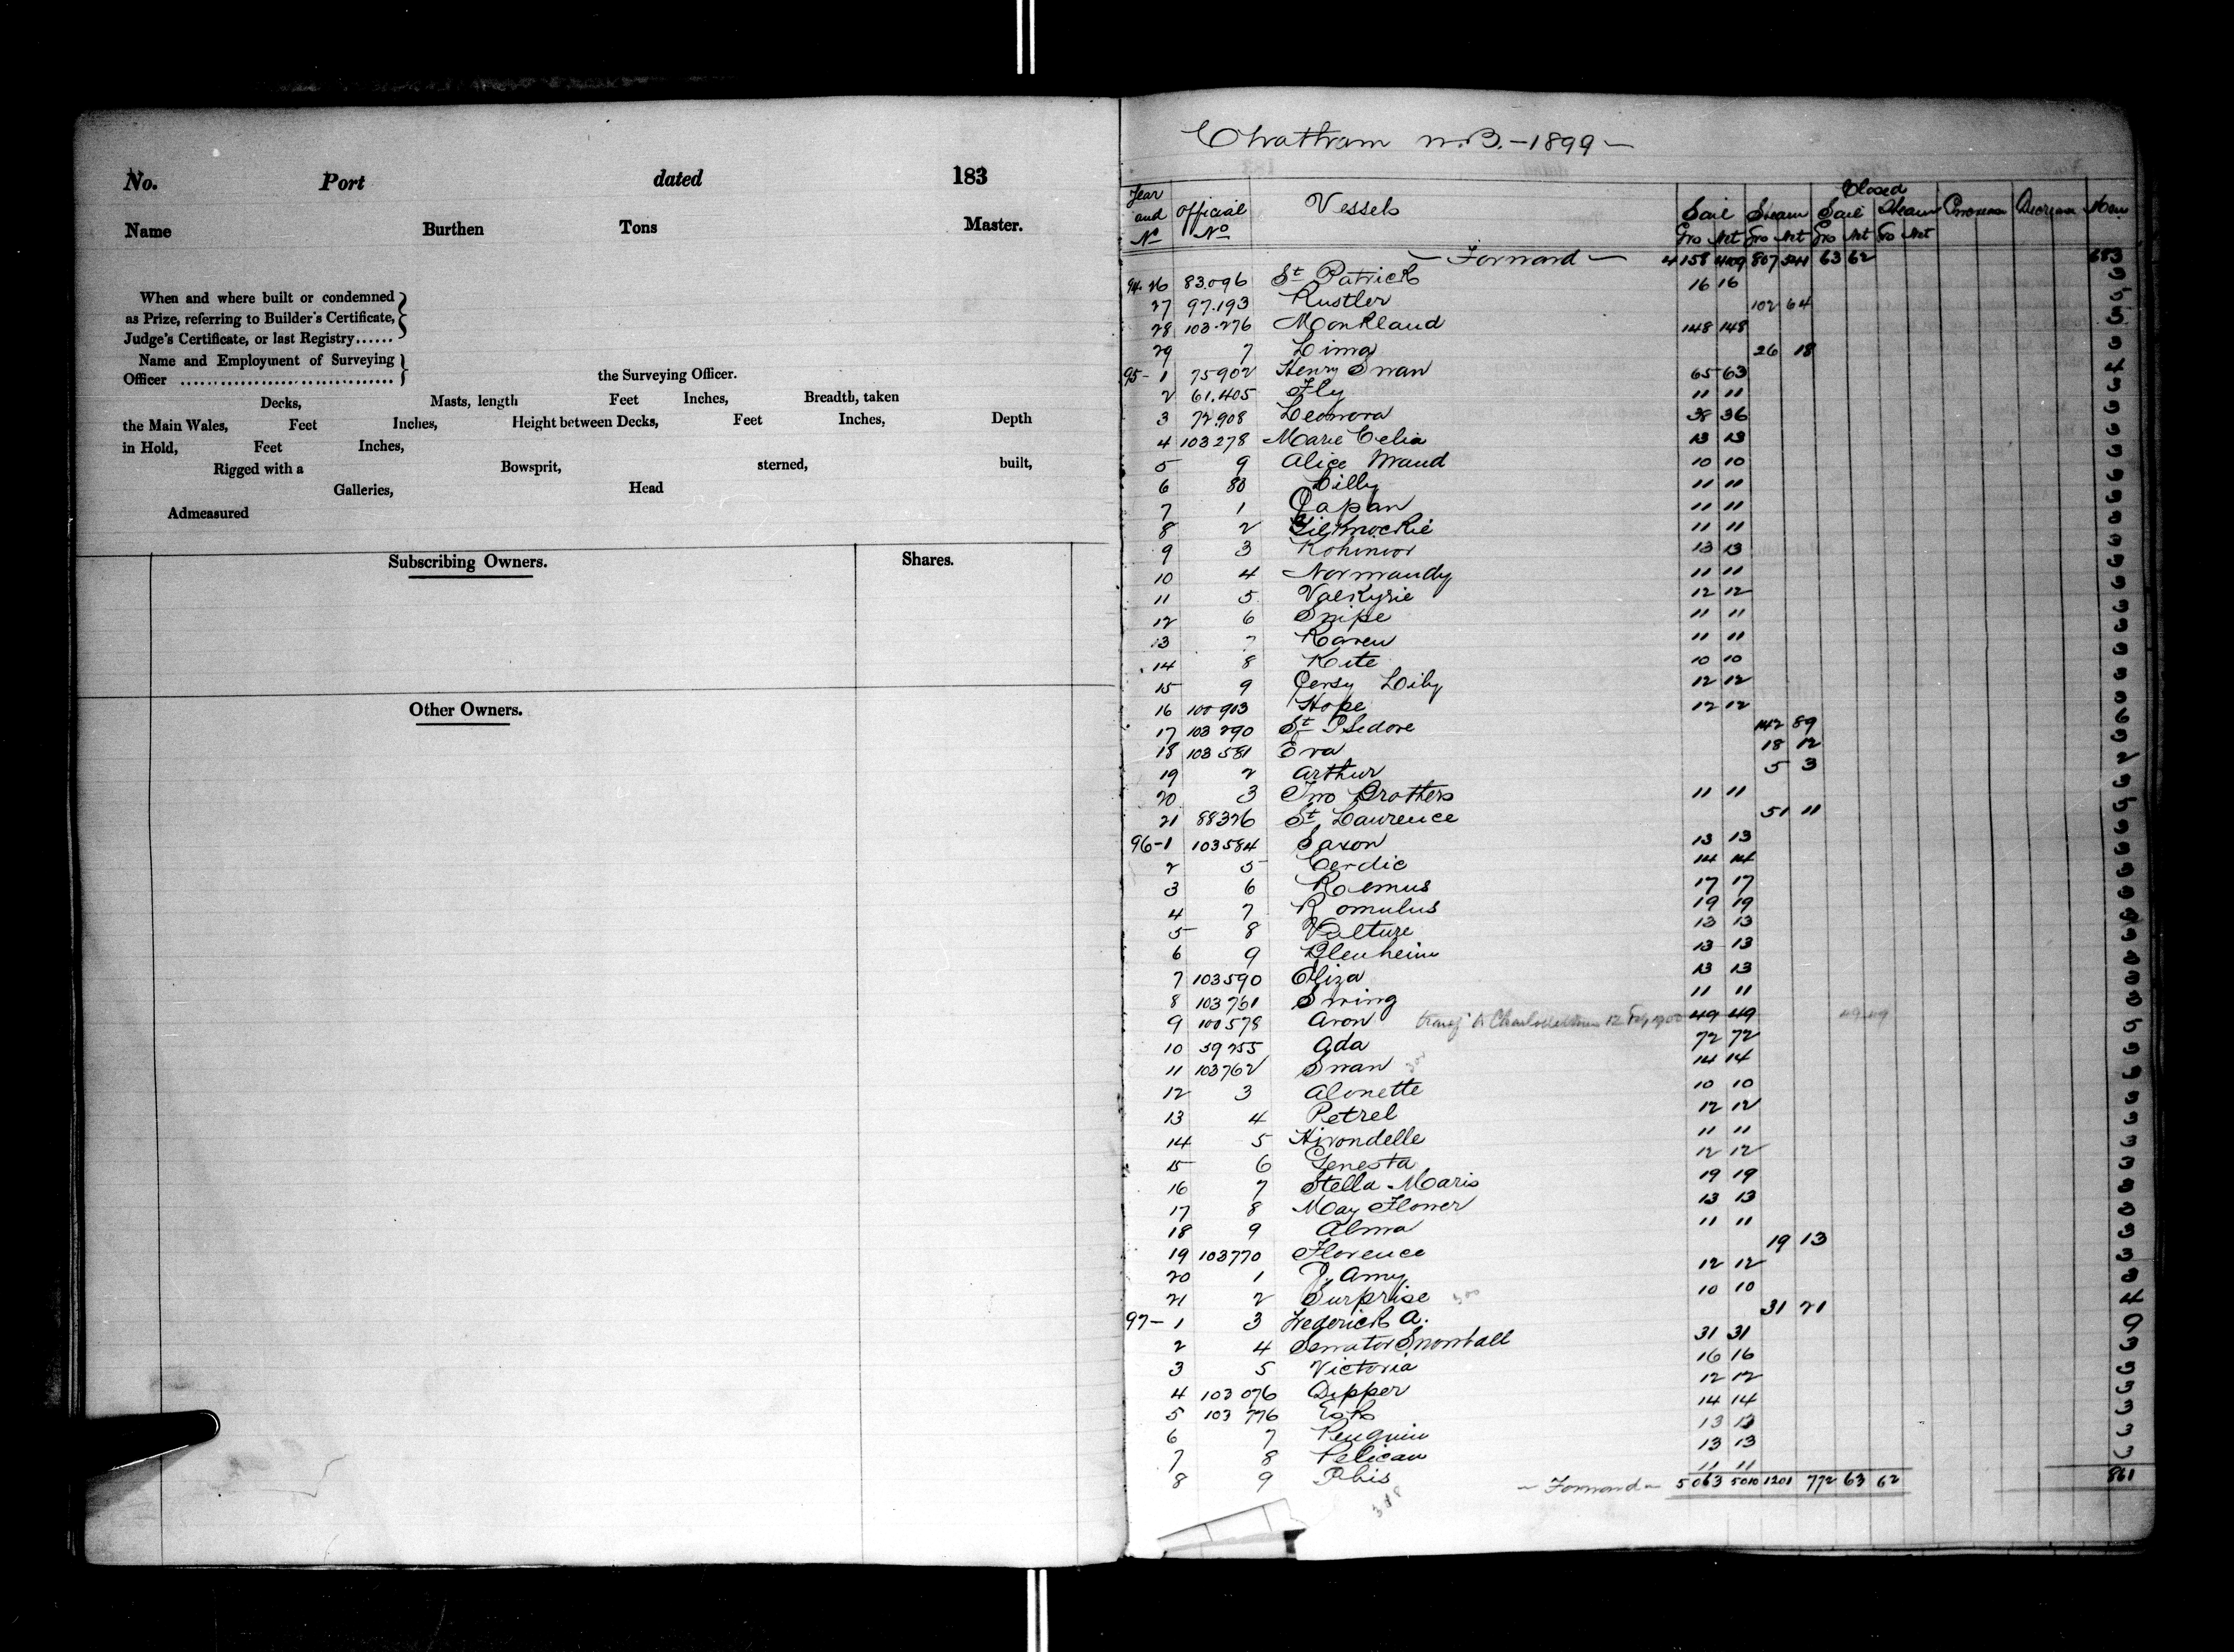 No. Port dated 183
Name Burthen Tons Master.
When and where built or condemned
as Prize, referring to Builder's Certificate,
Judge's Certificate, or last Registry......
Name and Employment of Surveying
Officer .................................. the Surveying Officer.
Decks, Masts, length Feet Inches, Breadth, taken
the Main Wales, Feet Inches, Height between Decks, Feet Inches, Depth
in Hold, Feet Inches,
Rigged with a Bowsprit, sterned, built,
Galleries, Head
Admeasured
Subscribing Owners. Shares.
Other Owners.
Chatham N.B. - 1899 -
Closed
Year and No Official No Vessels Sail Steam Sail Steam Increase Decrease Men
Gro Net Gro Net Gro Net Gro Net
- Forward - 4158 4109 807 541 63 62 683
94-26 83.096 St Patrick 16 16 3
27 97.193 Rustler 102 64 5
28 103.276 Monkland 148 148 5
29 7 Lima 26 18 3
95-1 75902 Henry Swan 65 63 4
2 61.405 Fly 11 11 3
3 72.908 Leonora 38 36 3
4 103278 Marie Celia 13 13 3
5 9 Alice Maud 10 10 3
6 80 Lilly 11 11 3
7 1 Japan 11 11 3
8 2 Gilknockie 11 11 3
9 3 Kohinoor 13 13 3
10 4 Normandy 11 11 3
11 5 Valkyrie 12 12 3
12 6 Snipe 11 11 3
13 7 Raven 11 11 3
14 8 Kite 10 10 3
15 9 Jersy Lily 12 12 3
16 100903 Hope 12 12 3
17 103290 St Isidore 142 89 6
18 103581 Eva 18 12 3
19 2 Arthur 5 3 2
20 3 Two Brothers 11 11 3
21 88326 St Laurence 51 11
96-1 103584 Saxon 13 13 3
2 5 Cerdic 14 14 3
3 6 Roemus 17 17 3
4 7 Romulus 19 19 3
5 8 Vulture 13 13 3
6 9 Blenheim 13 13 3
7 103590 Eliza 13 13 3
8 103761 Swing 11 11 3
9 100578 Avon transf to Charlottetown 12 1900 49 49 49 49
10 59255 Ada 72 72
11 103762 Swan 14 14 3
12 3 Alouette 10 10 3
13 4 Petrel 12 12 3
14 5 Hirondelle 11 11 3
15 6 Genesta 12 12 3
16 7 Stella Maris 19 19 3
17 8 May Flower 13 13 3
18 9 Alma 11 11 3
19 103770 Florence 19 13 3
20 1 J. Amy 12 12 3
21 2 Surprise 10 10 3
97-1 3 Frederick A. 31 21 4
2 4 Senator Snowball 31 31
3 5 Victoria 16 16 3
4 103076 Dipper 12 12 3
5 103776 Esk 14 14 3
6 7 Penguin 13 13 3
7 8 Pelican 13 13 3
8 9 Ibis 11 11 3
- Forward - 5063 5010 1201 772 63 62 861